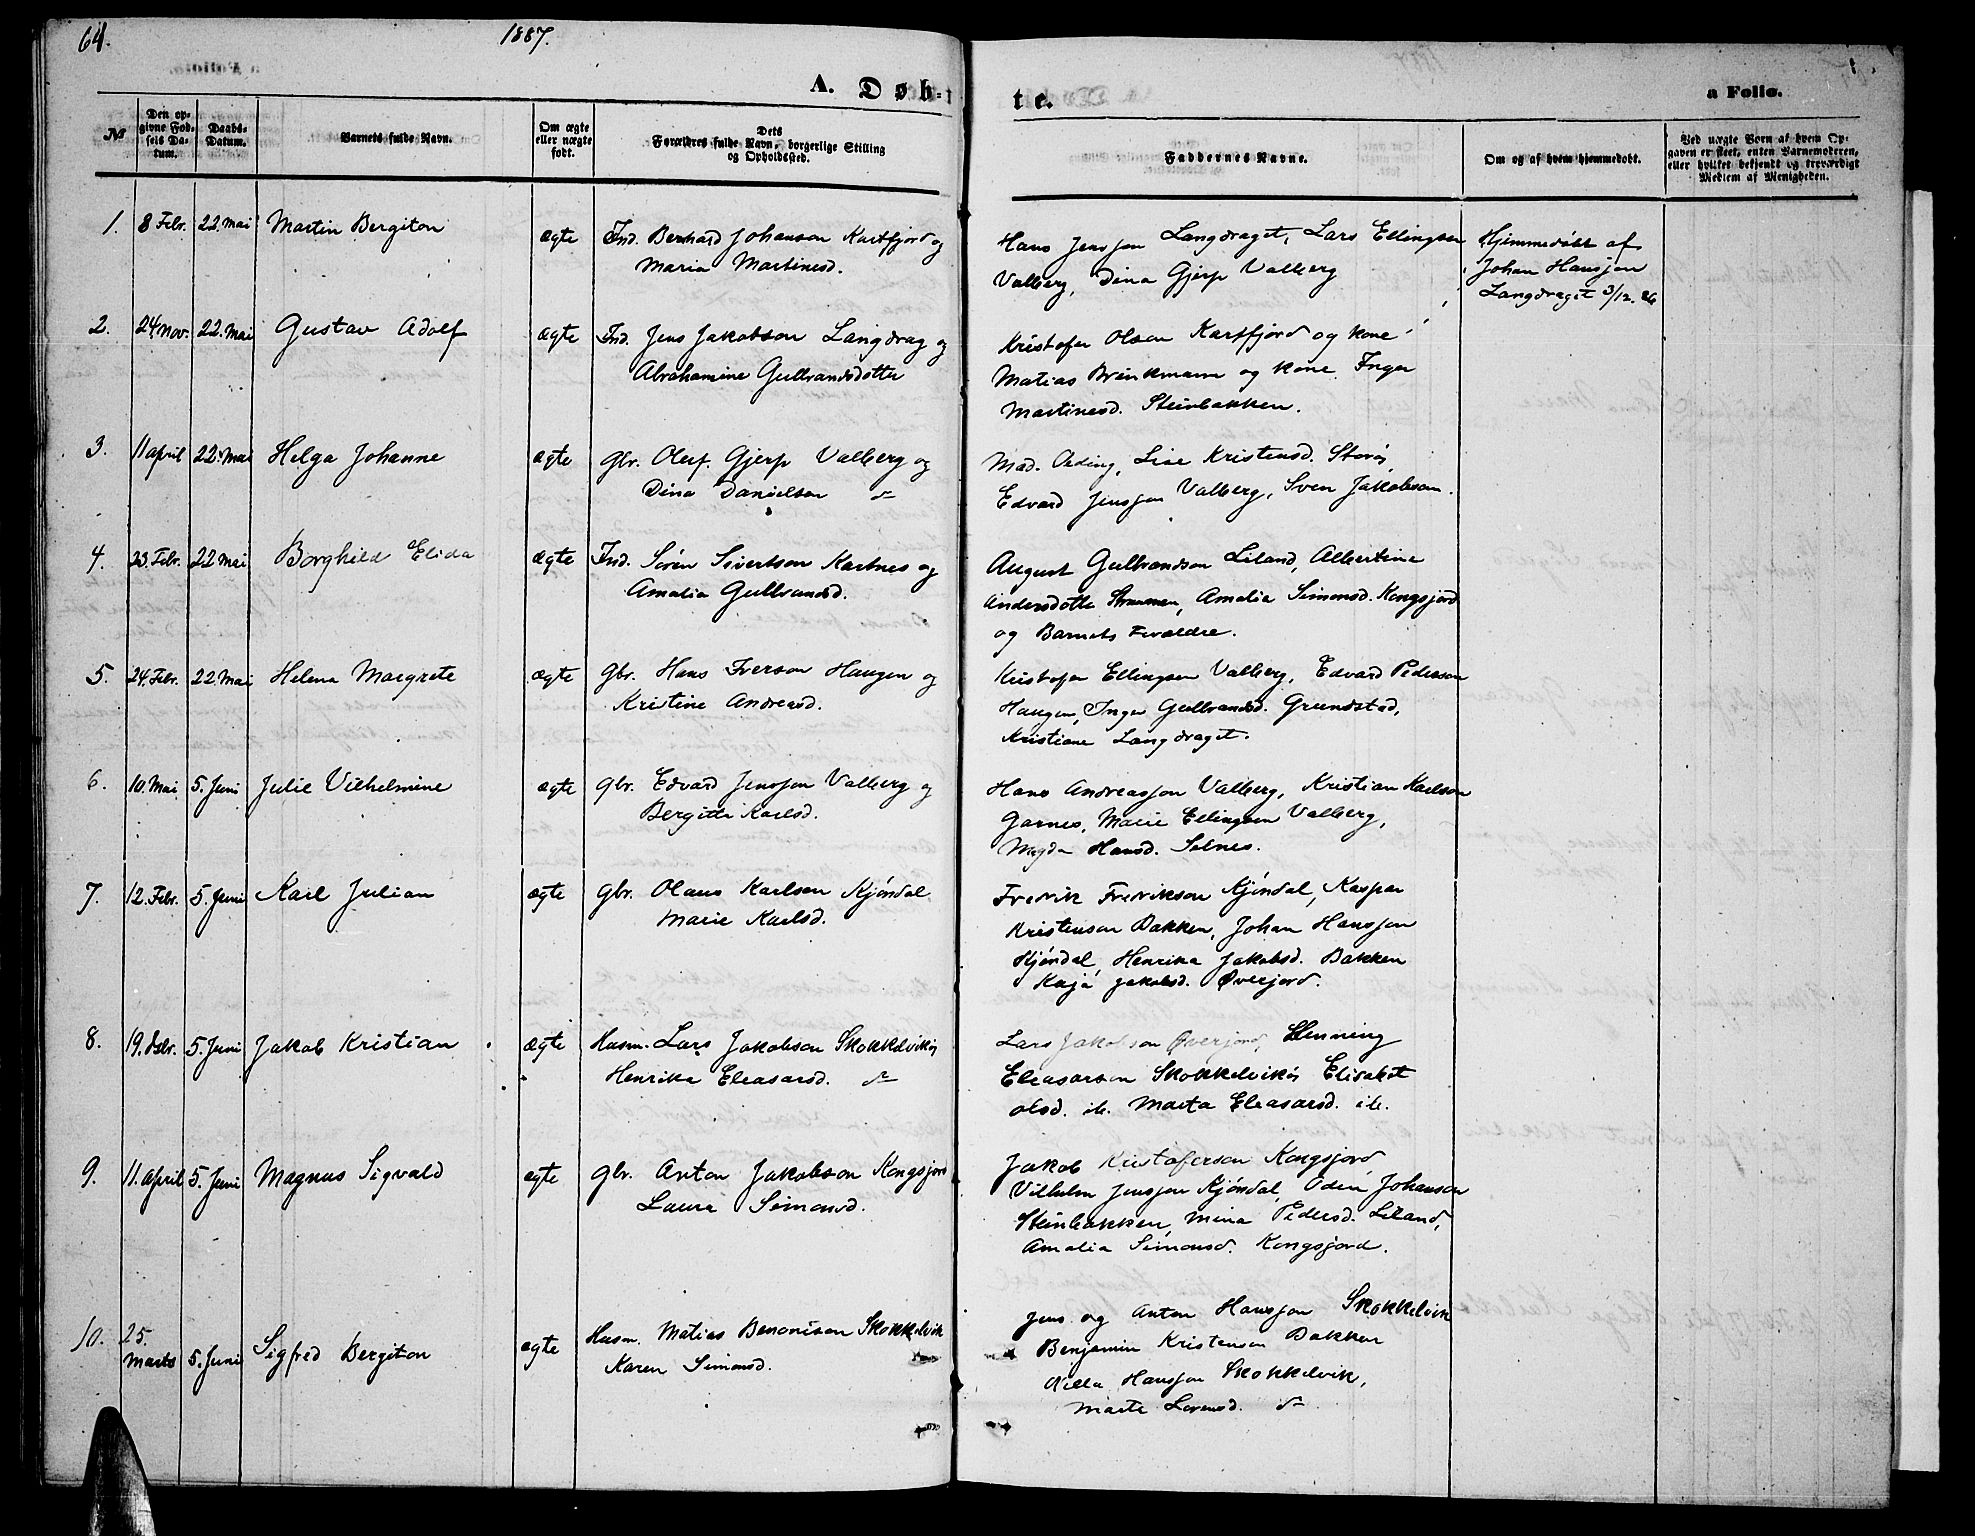 64.
1887.
A. Døbte.
a Folio.
№
Den opgivne Fødsels Datum.
Daabs-Datum.
Barnets fulde Navn.
Om ægte eller uægte født.
Dets Forældres fulde Navn, borgerlige Stilling og Opholdssted.
Faddernes Navne.
Om og af hvem hjemmedøbt.
Ved uægte Børn af hvem Opgaven er skeet, enten Barnemoderen, eller hvilket bekjendt og troværdigt Medlem af Menigheden.
1. 8 Febr. 22. Mai Martin Bergiton ægte Ind. Berhard Johanson Kartfjord og
Maria Martinesd.
Hans Jensson Langdraget, Lars Ellingsen
Valberg, Dina Gjerp Valberg
Hjemmedøbt af
Johan Hansson
Langdraget 3/12. 86
2. 24 Nov. 22. Mai Gustav Adolf ægte Ind. Jens Jakobson Langdrag og
Abrahamine Gulbrandsdotter
Kristofer Olsen Kartfjord og kone
Matias Brinkmann og kone Inger
Martinesd. Steinbakken.
3. 11 april 22. Mai Helga Johanne ægte Gbr. Oluf Gjerp Valberg og
Dina Danielsen
Mad. Oeding, Lise Kristensd. Storøi,
Edvard Jensson Valberg, Sven Jakobson.
4. 23. Febr. 22 Mai Borghild Elida ægte Ind. Søren Sivertson Kartnes og
Amalia Gulbrandsd.
August Gulbrandson Leland, Albertine
Andersdotter Strømmen, Amalia Simonsd. Kongsjord
og Barnets Foraldre.
5. 24. Febr. 22. Mai Helena Margrete ægte Gbr. Hans Iverson Haugen og
Kristine Andreasd.
Kristofer Ellingsen Valberg, Edvard Pederson
Haugen, Inger Gulbrandsd. Grundstad,
Kristiane Langdraget.
6. 10. Mai 5. Juni Julie Vilhelmine ægte Gbr. Edvard Jensson Valberg og
Bergitte Karlsd.
Hans Andreasson Valberg, Kristian Karlson
Garnes, Marie Ellingsen Valberg,
Magda Hansd. Selnes.
7. 12. Febr. 5. Juni Karl Julian ægte Gbr. Olaus Karlsen Kjøndal
Marie Karlsd.
Fredrik Fredrikson Kjøndal, Kaspar
Kristenson Bakken, Johan Hansson
Kjøndal, Henrika Jakobsd. Bakken
Kaja Jakobsd. Øverjord.
8. 19. Febr. 5. Juni Jakob Kristian ægte Husm. Lars Jakobson Skokkelvik
Henrika Eleasarsd.
Lars Jakobson Øverjord, Henning
Eleasarson Skokkelvik, Elisabet
Olsd. ib. Marta Eleasarsd. ib.
9. 11. April 5. Juni Magnus Sigvald ægte Gbr. Anton Jakobson Kongsjord
Laura Simonsd.
Jakob Kristoferson Kongsjord
Vilhelm Jensson Kjøndal, Odin Johanson
Steinbakken, Mina Pedersd. Leland,
Amalia Simonsd. Kongsjord.
10. 25. Marts 5. Juni Sigfred Bergiton ægte Husm. Matias Benonisen Skokkelvik
Karen Simonsd.
Jens og Anton Hansson Skokkelvik
Benjamin Kristenson Bakken
Hansson Skokkelvik,
Marte Lorensd.